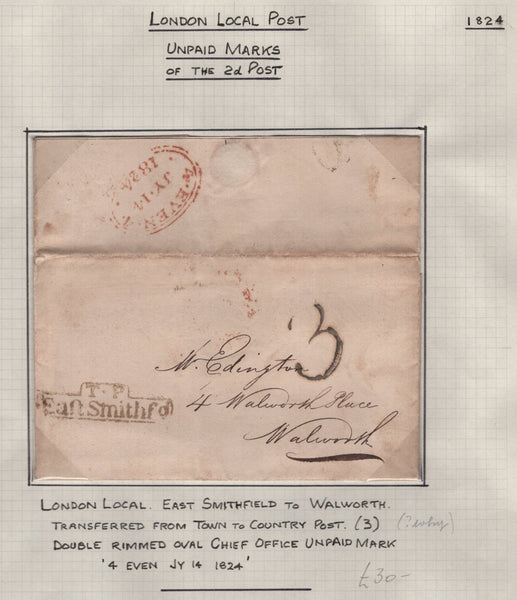 London Local Post
1824
Unpaid Marks
of the 2d Post
4.EVEN
JY.14
1824
3
Mr. Edington
4 Walworth Place
Walworth
T.P
East Smithfd
London Local. East Smithfield to Walworth.
Transferred from Town to Country Post. (3)
Double rimmed oval Chief Office Unpaid Mark
'4 Even Jy 14 1824'
£30-